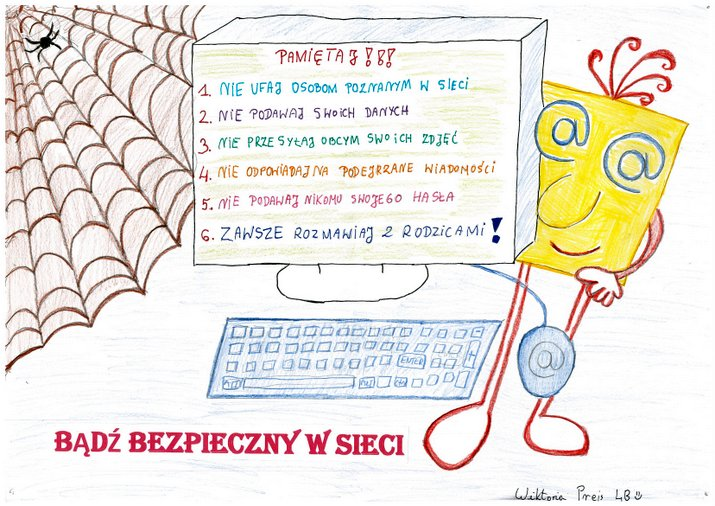 PAMIĘTAJ!!!
1. NIE UFAJ OSOBOM POZNANYM W SIECI
2. NIE PODAWAJ SWOICH DANYCH
3. NIE PRZESYŁAJ OBCYM SWOICH ZDJĘĆ
4. NIE ODPOWIADAJ NA PODEJRZANE WIADOMOŚCI
5. NIE PODAWAJ NIKOMU SWOJEGO HASŁA
6. ZAWSZE ROZMAWIAJ Z RODZICAMI!
@ @
ENTER
@
BĄDŹ BEZPIECZNY W SIECI
Wiktoria Preis 4B